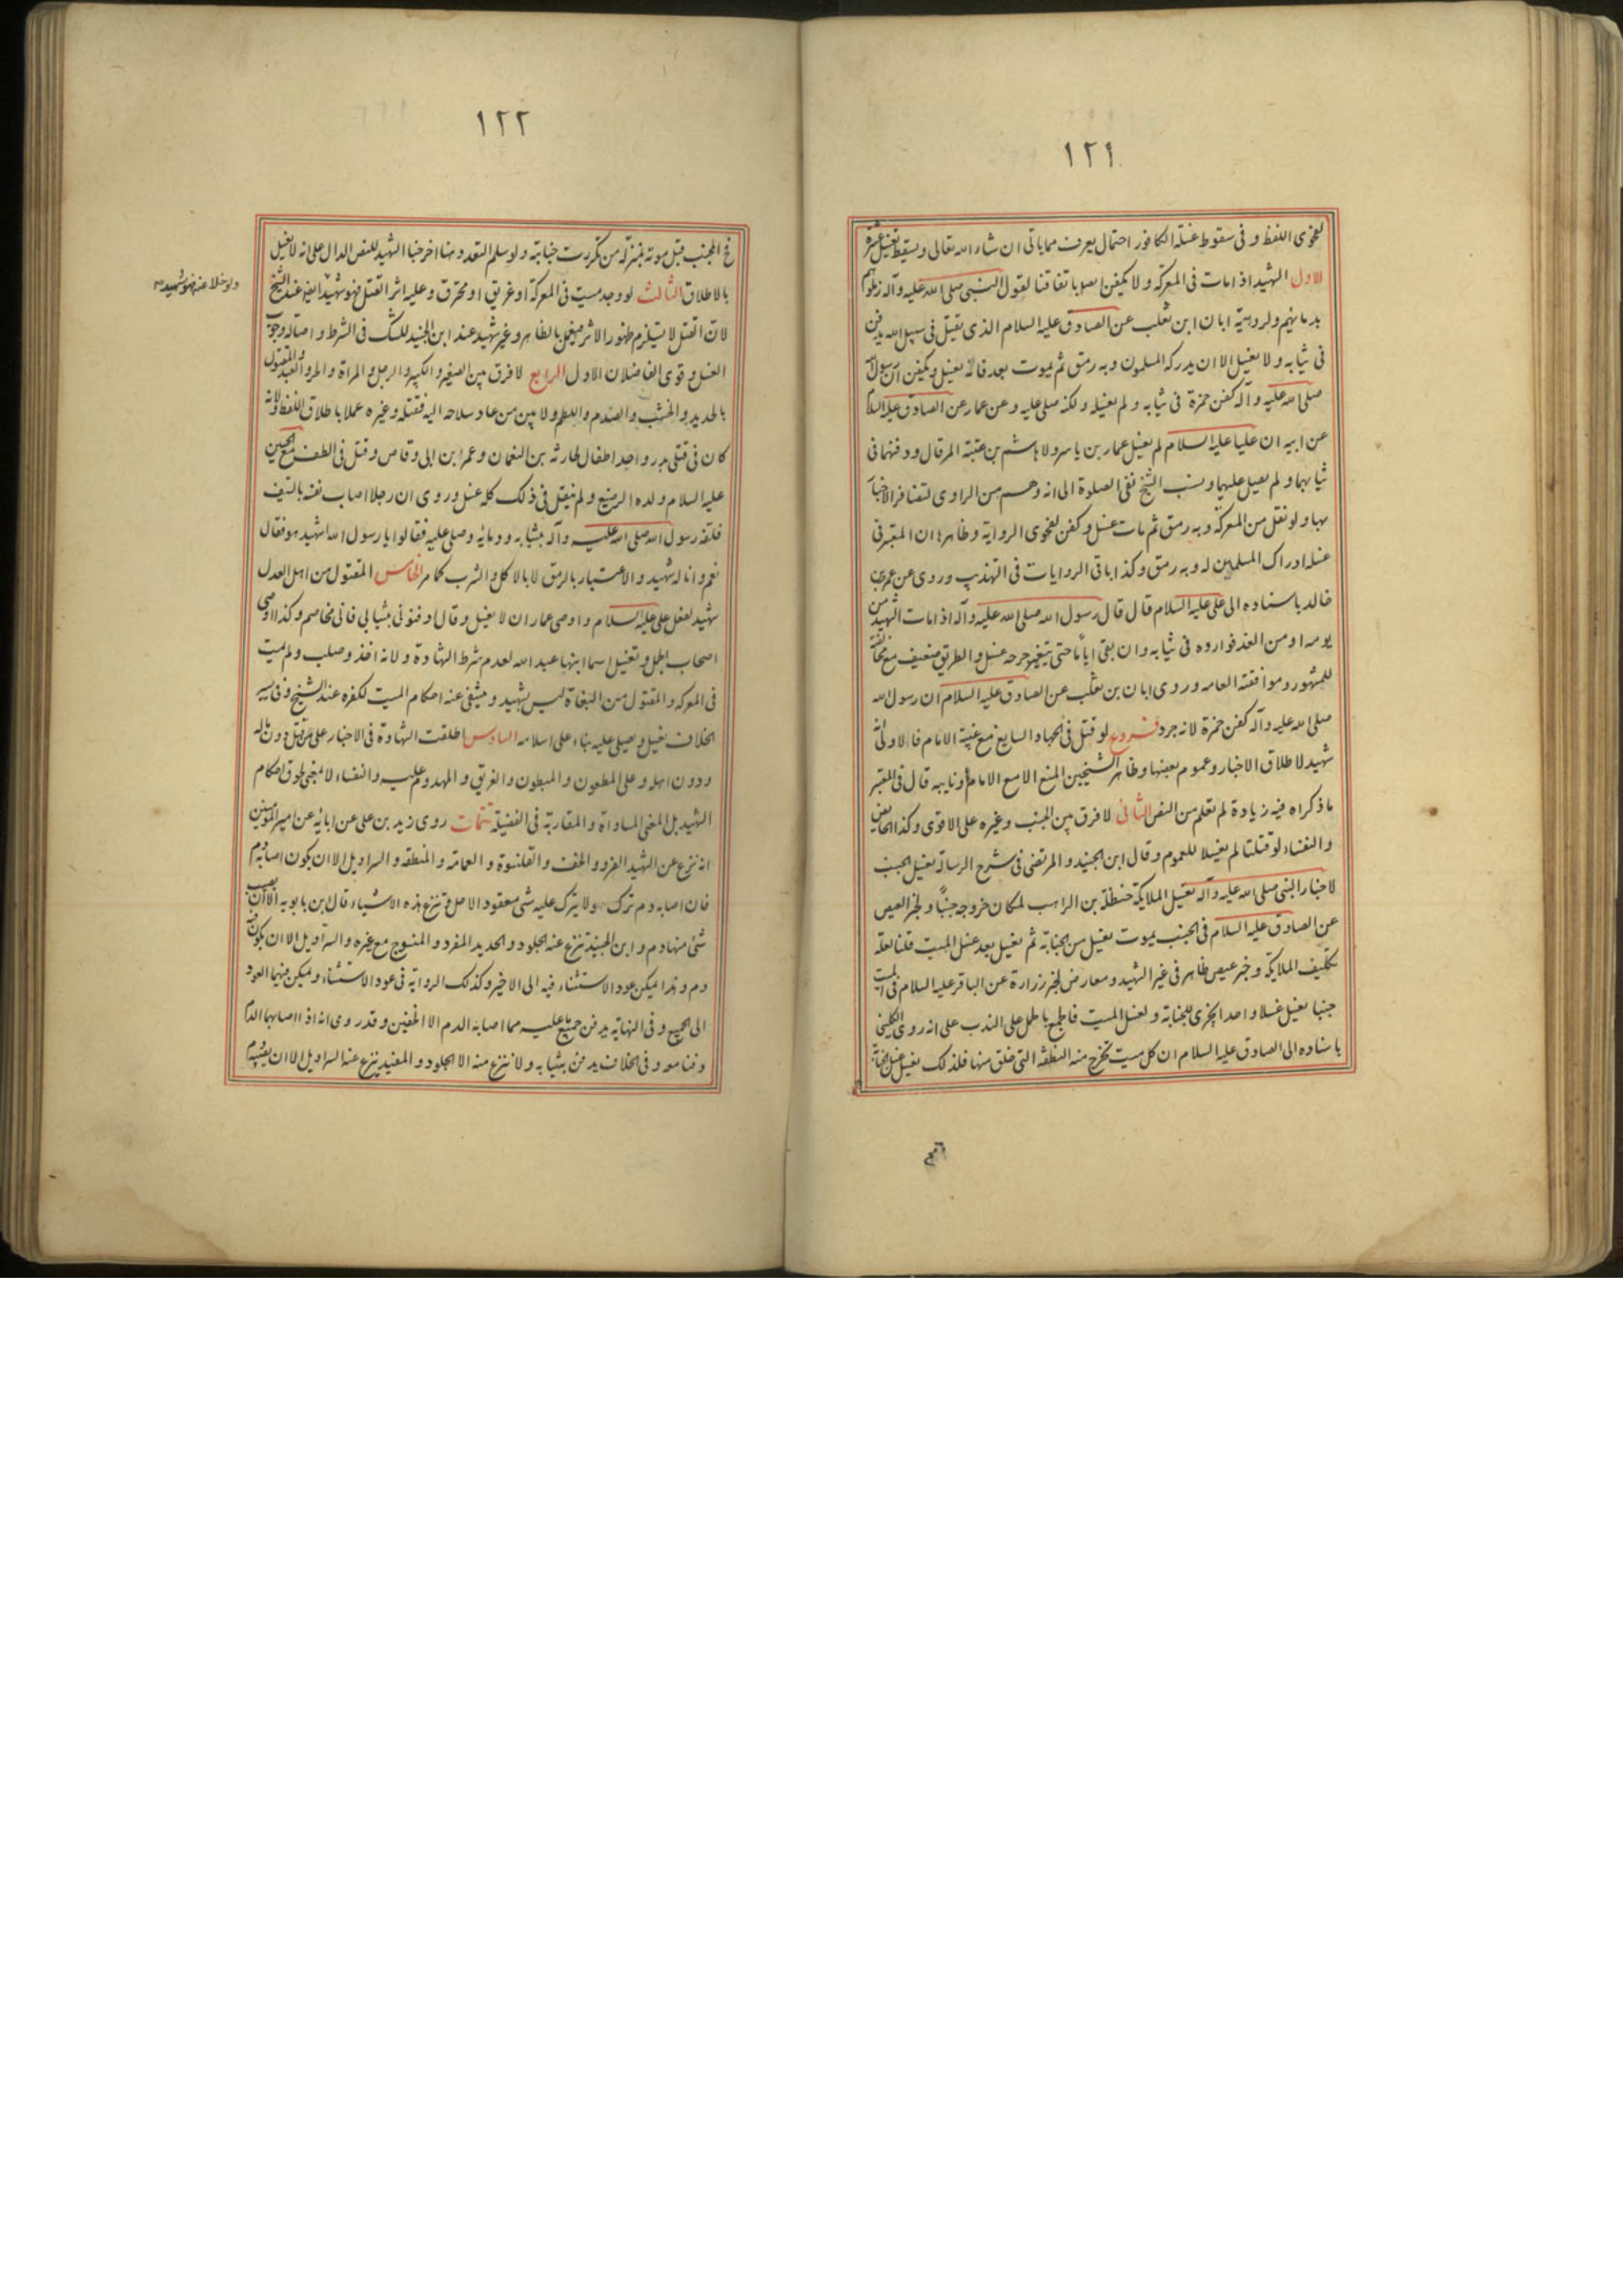 ١٢١
لفحوى اللفظ و فى سقوط غسلة الكافور احتمال يعرف مما ياتى ان شاء الله تعالى ويسقط تغسيل عشرة
الاول الشهيد اذا مات فى المعركة ولا يكفن ايضا باتفاقنا لقول النبى صلى الله عليه وآله زملوهم
بدمائهم ولرواية ابان ابن تغلب عن الصادق عليه السلام الذى يقتل فى سبيل الله يدفن
فى ثيابه ولا يغسل الا ان يدركه المسلمون وبه رمق ثم يموت بعد فانه يغسل ويكفن ان رسول الله
صلى الله عليه وآله كفن حمزة فى ثيابه ولم يغسله ولكنه صلى عليه وعن عمار عن الصادق عليه السلام
عن ابيه ان عليا عليه السلام لم يغسل عمار بن ياسر ولا هاشم بن عتبة المرقال ودفنهما فى
ثيابهما ولم يصل عليهما ونسب الشيخ نفى الصلوة الى انه وهم من الراوى لتظافر الاخبار
بها ولو نقل من المعركة وبه رمق ثم مات غسل وكفن لفحوى الرواية وظاهرها ان المعتبر فى
غسله ادراك المسلمين له وبه رمق وكذا باقى الروايات فى التهذيب وروى عن عمرو بن
خالد باسناده الى على عليه السلام قال قال رسول الله صلى الله عليه وآله اذا مات الشهيد من
يومه او من الغد فواروه فى ثيابه وان بقى اياما حتى يتغير جرحه غسل والطريق ضعيف مع مخالفة
المشهور وموافقته العامه وروى ابان بن تغلب عن الصادق عليه السلام ان رسول الله
صلى الله عليه وآله كفن حمزة لانه جرد فروع لو قتل فى الجهاد السايغ مع غيبة الامام فالاولى انه
شهيد لاطلاق الاخبار وعموم بعضها وظاهر الشيخين المنع الا مع الامام او نايبه قال فى المعتبر
ماذكراه فيه زيادة لم تعلم من النص الثانى لا فرق بين الجنب وغيره على الاقوى وكذا الحائض
والنفساء لو قتلتا لم يغسلا للعموم وقال ابن الجنيد والمرتضى فى شرح الرسالة يغسل الجنب
لاخبار النبى صلى الله عليه وآله تغسيل الملايكة حنظلة بن الراهب لمكان خروجه جنبا ولخبر العيص
عن الصادق عليه السلام فى الجنب يموت يغسل من الجنابة ثم يغسل بعد غسل الميت قلنا لعله
تكليف الملايكة وخبر عيص ظاهر فى غير الشهيد ومعارض لخبر زرارة عن الباقر عليه السلام فى الميت
جنبا يغسل غسلا واحدا يجزى للجنابة ولغسل الميت فالجمع بالحمل على الندب على انه روى الكلينى
باسناده الى الصادق عليه السلام ان كل ميت تخرج منه النطفة التى خلق منها فلذلك يغسل غسل الجنابة
١٢٢
الجنب قبل موته بمنزلة من تكررت جنابته ولو سلم التعدد منها اخرجنا الشهيد للنص الدال على انه لا يغسل
بالاطلاق الثالث لو وجد ميت فى المعركة او غريق او محترق وعليه اثر القتل فهو شهيد عند الشيخ
ولو خلا عنه فهو شهيد
لان القتل لا يستلزم ظهور الاثر فيعمل بالظاهر وغير شهيد عند ابن الجنيد للشك فى الشرط واصالة وجوب
الغسل وقوى الفاضلان الاول الرابع لا فرق بين الصغير والكبير والرجل والمراة والحر والعبد والمقتول
بالحديد والخشب والصدم واللطم ولا بين من عاد سلاحه اليه فقتله وغيره عملا باطلاق اللفظ ولانه
كان فى قتلى بدر واحد اطفال لحارثه بن النعمان وعمر ابن ابى وقاص وقتل فى الطف مع الحسين
عليه السلام ولده الرضيع ولم ينقل فى ذلك كله غسل وروى ان رجلا اصاب نفسه بالسيف
فلفه رسول الله صلى الله عليه وآله بثيابه ودمائه وصلى عليه فقالوا يا رسول الله اشهيد هو فقال
نعم وانا له شهيد والاعتبار بالرمق لا بالاكل والشرب كما مر الخامس المقتول من اهل العدل
شهيد لفعل على عليه السلام واوصى عمار ان لا يغسل وقال ادفنونى بثيابى فانى مخاصم وكذا اوصى
اصحاب الجمل وتغسيل اسما ابنها عبد الله لعدم شرط الشهادة ولانه اخذ وصلب ولم يمت
فى المعركه والمقتول من البغاة ليس بشهيد وينتفى عنه احكام الميت لكفره عند الشيخ وفى سير
الخلاف يغسل ويصلى عليه بناء على اسلامه السادس اطلقت الشهادة فى الاخبار على من قتل دون ماله
ودون اهله وعلى المطعون والمبطون والغريق والمهدوم عليه والنفساء لا بمعنى لحوق احكام
الشهيد بل المعنى المساواة والمقاربة فى الفضيلة تتمات روى زيد بن على عن ابائه عن امير المومنين
انه نزع عن الشهيد الفرو والخف والقلنسوة والعمامة والمنطقة والسراويل الا ان يكون اصابه دم
فان اصابه دم ترك ولا يترك عليه شى معقود الا حل وتنزع هذه الاشياء قال ابن بابويه الا ان يصيب
شى منها دم وابن الجنيد تنزع عنه الجلود والحديد المفرد والمنسوج مع غيره والسراويل الا ان يكون فيه
دم وهذا يمكن عود الاستثناء فيه الى الاخير وكذلك الرواية فى عود الاستثناء ويمكن فيهما العود
الى الجميع وفى النهاية يدفن جميع ما عليه مما اصابه الدم الا الخفين وقد روى انه اذا اصابهما الدم
دفنا معه وفى الخلاف يدفن بثيابه ولا ننزع منه الا الجلود والمفيد ينزع عنه السراويل الا ان يصيبه دم